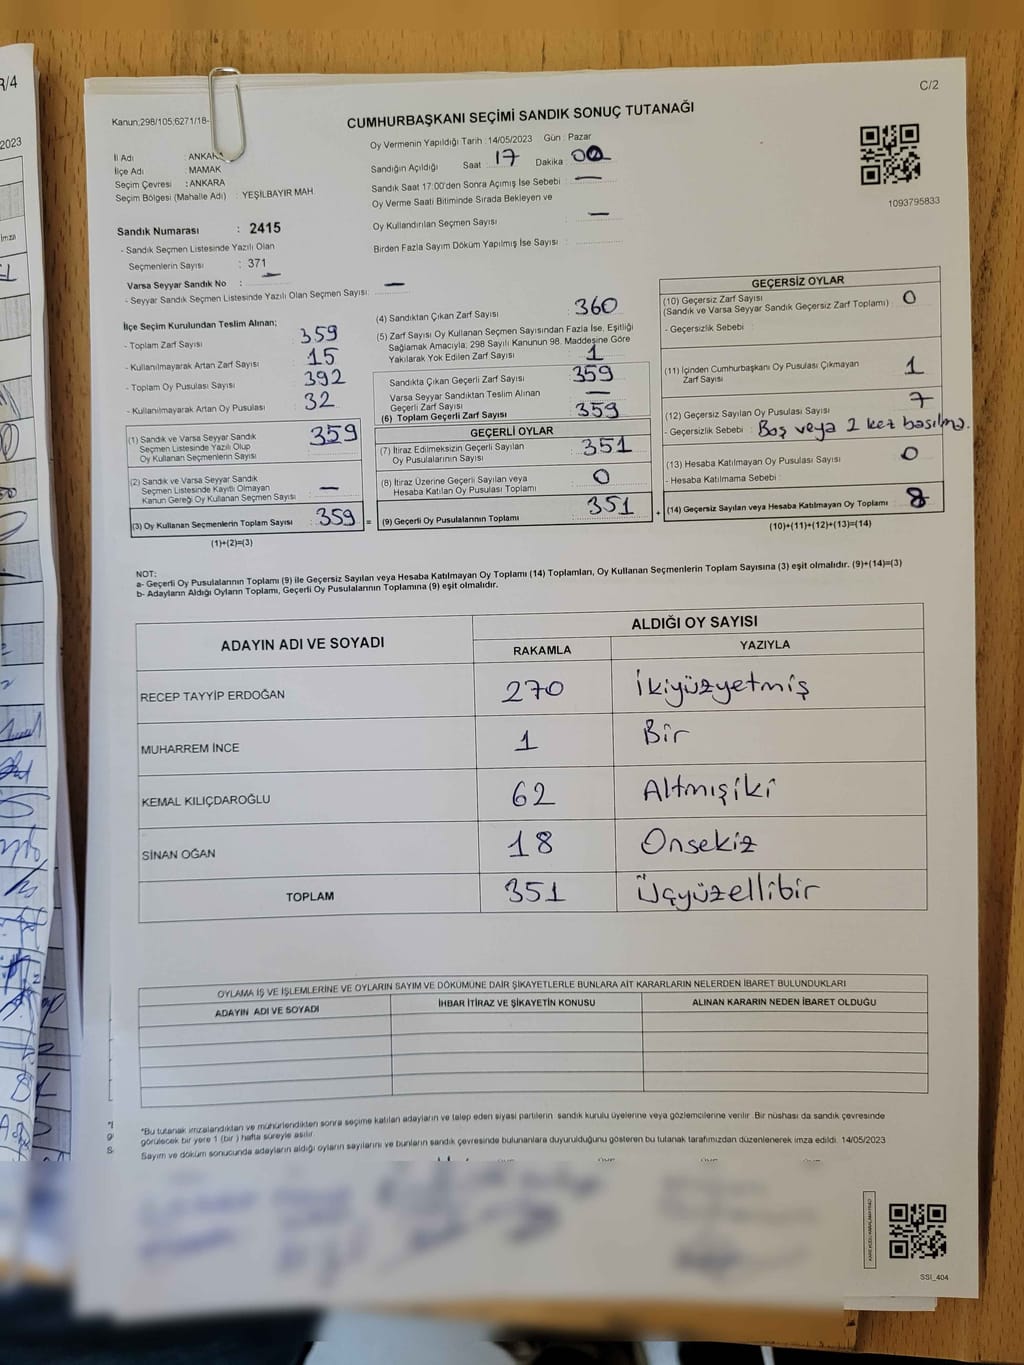 R/4
2023
İmza
C/2
Kanun,298/105;6271/18-
CUMHURBAŞKANI SEÇİMİ SANDIK SONUÇ TUTANAĞI
İl Adı : ANKARA
İlçe Adı : MAMAK
Seçim Çevresi : ANKARA
Seçim Bölgesi (Mahalle Adı) : YEŞİLBAYIR MAH.
Oy Vermenin Yapıldığı Tarih : 14/05/2023 Gün : Pazar
Sandığın Açıldığı Saat : 17 Dakika : 00
Sandık Saat 17:00'den Sonra Açımış İse Sebebi : —
Oy Verme Saati Bitiminde Sırada Bekleyen ve
Oy Kullandırılan Seçmen Sayısı : —
Birden Fazla Sayım Döküm Yapılmış İse Sayısı :
1093795833
Sandık Numarası : 2415
- Sandık Seçmen Listesinde Yazılı Olan
Seçmenlerin Sayısı : 371
Varsa Seyyar Sandık No : —
- Seyyar Sandık Seçmen Listesinde Yazılı Olan Seçmen Sayısı: —
İlçe Seçim Kurulundan Teslim Alınan;
- Toplam Zarf Sayısı : 359
- Kullanılmayarak Artan Zarf Sayısı : 15
- Toplam Oy Pusulası Sayısı : 392
- Kullanılmayarak Artan Oy Pusulası : 32
(1) Sandık ve Varsa Seyyar Sandık
Seçmen Listesinde Yazılı Olup
Oy Kullanan Seçmenlerin Sayısı : 359
(2) Sandık ve Varsa Seyyar Sandık
Seçmen Listesinde Kayıtlı Olmayan
Kanun Gereği Oy Kullanan Seçmen Sayısı : —
(3) Oy Kullanan Seçmenlerin Toplam Sayısı : 359 =
(1)+(2)=(3)
(4) Sandıktan Çıkan Zarf Sayısı : 360
(5) Zarf Sayısı Oy Kullanan Seçmen Sayısından Fazla İse, Eşitliği
Sağlamak Amacıyla; 298 Sayılı Kanunun 98. Maddesine Göre
Yakılarak Yok Edilen Zarf Sayısı : 1
Sandıkta Çıkan Geçerli Zarf Sayısı : 359
Varsa Seyyar Sandıktan Teslim Alınan
Geçerli Zarf Sayısı : —
(6) Toplam Geçerli Zarf Sayısı : 359
GEÇERLİ OYLAR
(7) İtiraz Edilmeksizin Geçerli Sayılan
Oy Pusulalarının Sayısı : 351
(8) İtiraz Üzerine Geçerli Sayılan veya
Hesaba Katılan Oy Pusulası Toplamı : 0
(9) Geçerli Oy Pusulalarının Toplamı : 351 +
GEÇERSİZ OYLAR
(10) Geçersiz Zarf Sayısı : 0
(Sandık ve Varsa Seyyar Sandık Geçersiz Zarf Toplamı)
- Geçersizlik Sebebi :
(11) İçinden Cumhurbaşkanı Oy Pusulası Çıkmayan
Zarf Sayısı : 1
(12) Geçersiz Sayılan Oy Pusulası Sayısı : 7
- Geçersizlik Sebebi : Boş veya 2 kez basılmş.
(13) Hesaba Katılmayan Oy Pusulası Sayısı : 0
- Hesaba Katılmama Sebebi :
(14) Geçersiz Sayılan veya Hesaba Katılmayan Oy Toplamı : 8
(10)+(11)+(12)+(13)=(14)
NOT:
a- Geçerli Oy Pusulalarının Toplamı (9) ile Geçersiz Sayılan veya Hesaba Katılmayan Oy Toplamı (14) Toplamları, Oy Kullanan Seçmenlerin Toplam Sayısına (3) eşit olmalıdır. (9)+(14)=(3)
b- Adayların Aldığı Oyların Toplamı, Geçerli Oy Pusulalarının Toplamına (9) eşit olmalıdır.
ADAYIN ADI VE SOYADI ALDIĞI OY SAYISI
RAKAMLA YAZIYLA
RECEP TAYYİP ERDOĞAN 270 İkiyüzyetmiş
MUHARREM İNCE 1 Bir
KEMAL KILIÇDAROĞLU 62 Altmışiki
SİNAN OĞAN 18 Onsekiz
TOPLAM 351 Üçyüzellibir
OYLAMA İŞ VE İŞLEMLERİNE VE OYLARIN SAYIM VE DÖKÜMÜNE DAİR ŞİKAYETLERLE BUNLARA AİT KARARLARIN NELERDEN İBARET BULUNDUKLARI
ADAYIN ADI VE SOYADI İHBAR İTİRAZ VE ŞİKAYETİN KONUSU ALINAN KARARIN NEDEN İBARET OLDUĞU
*Bu tutanak imzalandıktan ve mühürlendikten sonra seçime katılan adayların ve talep eden siyasi partilerin sandık kurulu üyelerine veya gözlemcilerine verilir. Bir nüshası da sandık çevresinde
görülecek bir yere 1 (bir) hafta süreyle asılır.
Sayım ve döküm sonucunda adayların aldığı oyların sayılarını ve bunların sandık çevresinde bulunanlara duyurulduğunu gösteren bu tutanak tarafımızdan düzenlenerek imza edildi. 14/05/2023
SSI_404